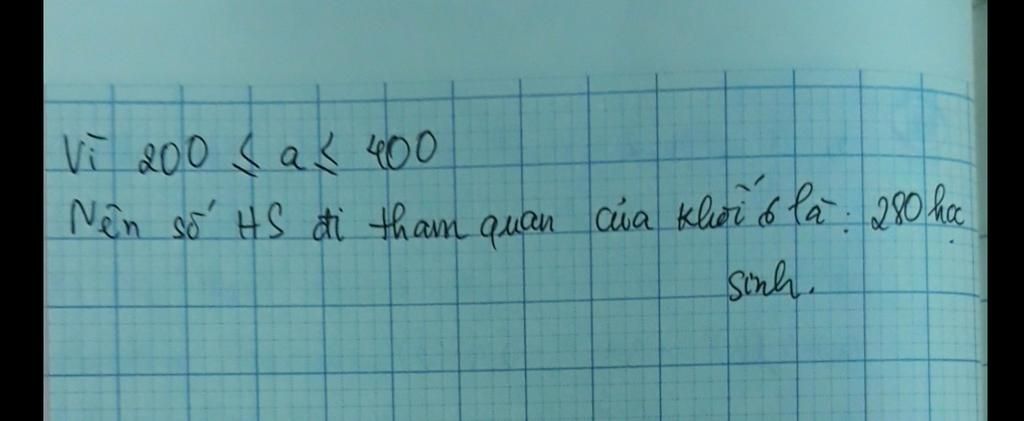 Vì 200 ≤ a ≤ 400
Nên số HS đi tham quan của khối 6 là: 280 học
sinh.